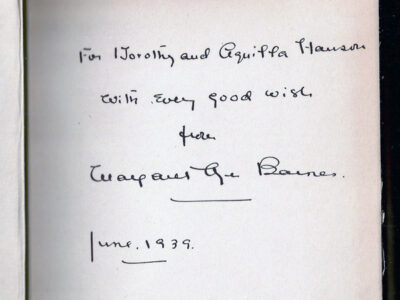 For Dorothy and Aquilla Hanson
with every good wish
from
Margaret Ayer Barnes.
June. 1939.